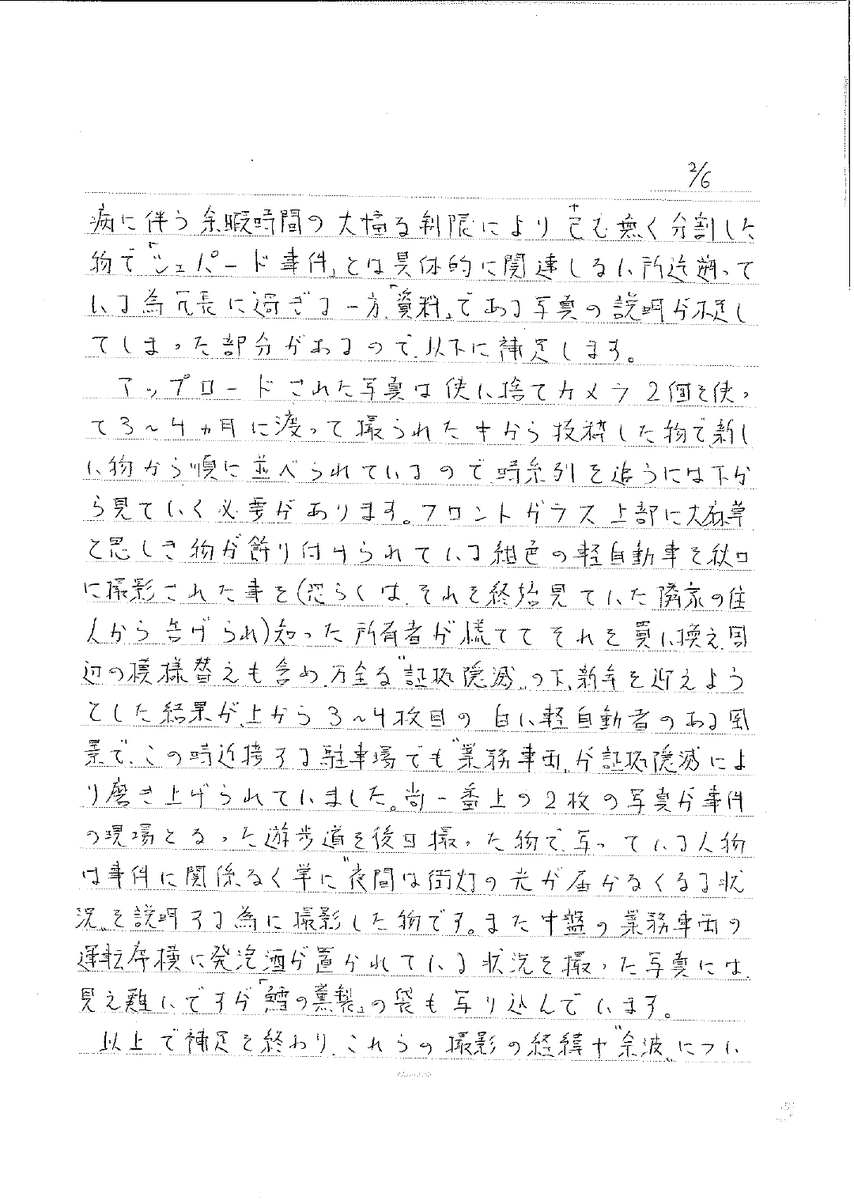 2/6
病に伴う余暇時間の大幅な制限により止む無く分割した
物で「シェパード事件」とは具体的に関連しない所迄遡って
いる為冗長に過ぎる一方、"資料"である写真の説明が不足し
てしまった部分があるので、以下に補足します。
アップロードされた写真は使い捨てカメラ2個を使っ
て3〜4ヵ月に渡って撮られた中から抜粋した物で、新し
い物から順に並べられているので、時系列を追うには下か
ら見ていく必要があります。フロントガラス上部に大麻草
と思しき物が飾り付けられている紺色の軽自動車を秋口
に撮影された事を(恐らくは、それを終始見ていた隣家の住
人から告げられ)知った所有者が慌ててそれを買い換え、周
辺の模様替えも含め、万全な"証拠隠滅"の下、新年を迎えよう
とした結果が、上から3〜4枚目の白い軽自動者のある風
景で、この時近接する駐車場でも"業務車両"が証拠隠滅によ
り磨き上げられていました。尚一番上の2枚の写真が事件
の現場となった遊歩道を後日撮った物で、写っている人物
は事件に関係なく単に"夜間は街灯の光が届かなくなる状
況"を説明する為に撮影した物です。また中盤の業務車両の
運転席横に発泡酒が置かれている状況を撮った写真には、
見え難いですが「鱈の薫製」の袋も写り込んでいます。
以上で補足を終わり、これらの撮影の経緯や"余波"につい